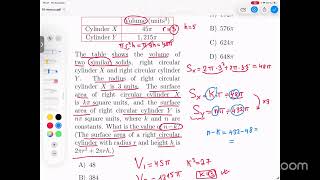 Volume (units³)
Cylinder X 45π
Cylinder Y 1,215π
The table shows the volume of
two similar solids, right circular
cylinder X and right circular cylinder
Y. The radius of right circular
cylinder X is 3 units. The surface
area of right circular cylinder X
is kπ square units, and the surface
area of right circular cylinder Y is
nπ square units, where k and n
are constants. What is the value of n − k?
(The surface area of a right circular
cylinder with radius r and height h is
2πr² + 2πrh.)
A) 48
B) 384
B) 576π
C) 624π
D) 648π
h=5
Sx = 2π·3² + 2π·3·5 = 48π
Sx = kπ = 48π
Sy = nπ = 432π
×9
n-k = 432-48 =
V₁ = 45π
K³=27
K=3
Rec